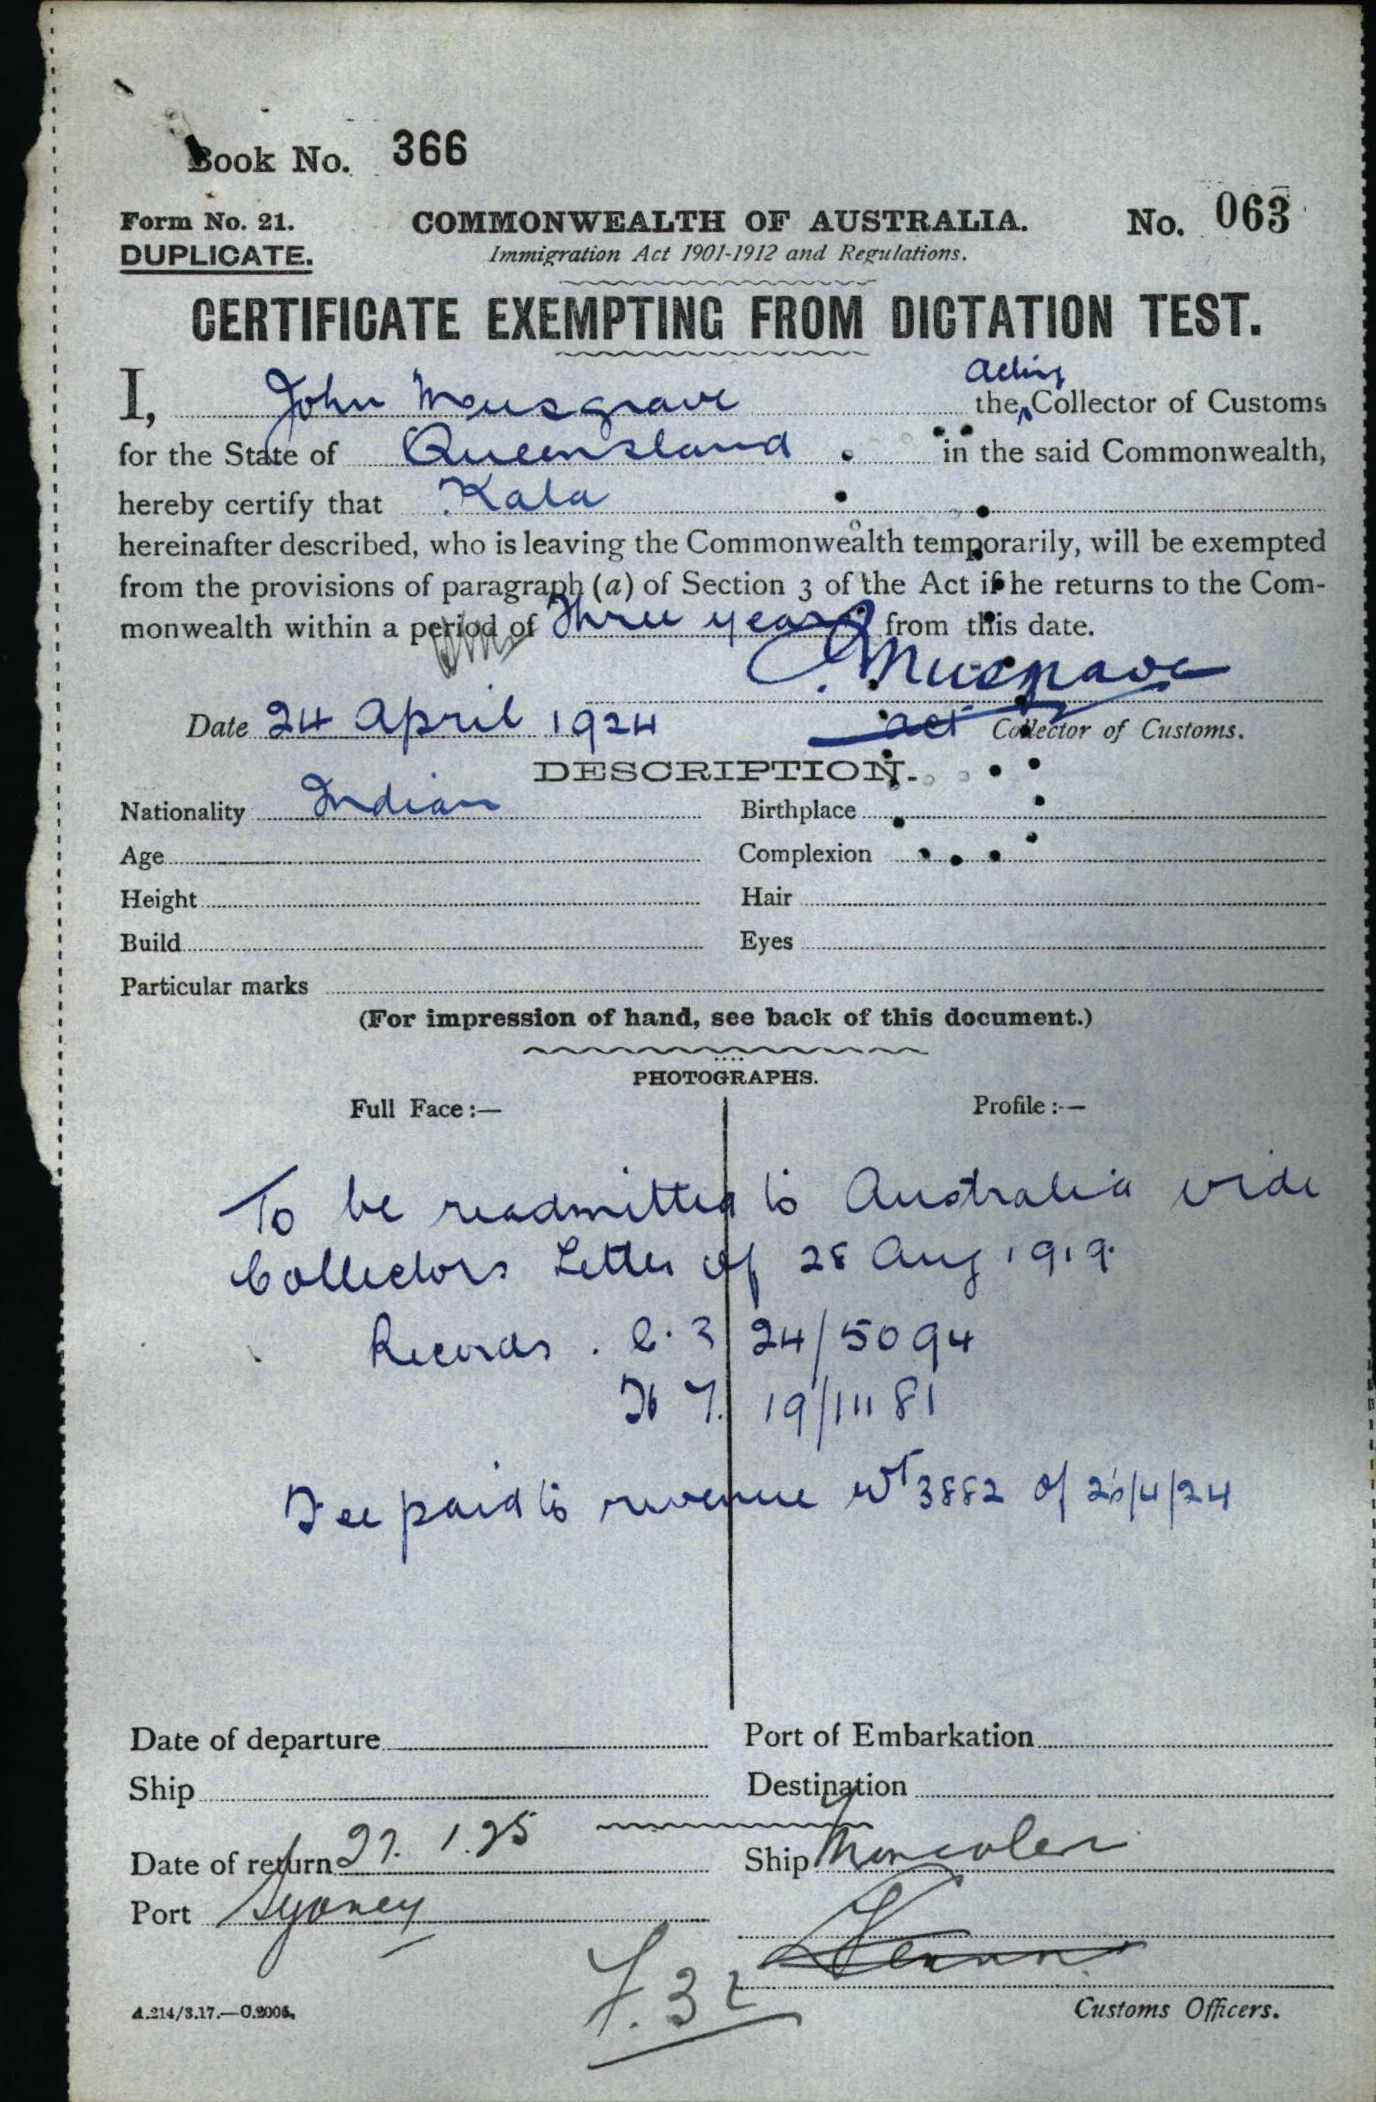 Book No. 366
Form No. 21.
COMMONWEALTH OF AUSTRALIA.
No. 063
DUPLICATE.
Immigration Act 1901-1912 and Regulations.
CERTIFICATE EXEMPTING FROM DICTATION TEST.
Acting
I, John Musgrave the Collector of Customs
for the State of Queensland in the said Commonwealth,
hereby certify that Kala
hereinafter described, who is leaving the Commonwealth temporarily, will be exempted
from the provisions of paragraph (a) of Section 3 of the Act if he returns to the Com-
monwealth within a period of Three years from this date.
J Musgrave
Date 24 April 1924 act Collector of Customs.
DESCRIPTION.
Nationality Indian Birthplace
Age Complexion
Height Hair
Build Eyes
Particular marks
(For impression of hand, see back of this document.)
PHOTOGRAPHS.
Full Face:— Profile:—
To be readmitted to Australia vide
Collectors Letter of 28 Aug 1919.
Records . C. 3 24/5094
7. 19/11181
Fee paid to revenue 3882 of /4/24
Date of departure Port of Embarkation
Ship Destination
Date of return 27. 1. 25 Ship
Port Sydney
F. 32
A.214/3.17.—C.2005. Customs Officers.